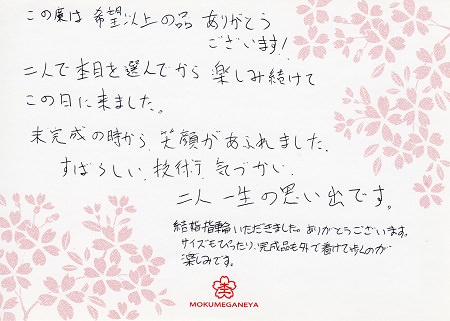 この度は 希望以上の品 ありがとう
ございます!
二人で木目を選んでから 楽しみ続けて
この日に来ました。
未完成の時から 笑顔があふれました。
すばらしい、技術、気づかい、
二人 一生の思い出です。
結婚指輪いただきました。ありがとうございます。
サイズもぴったり、完成品も外で着けて歩くのが
楽しみです。
MOKUMEGANEYA